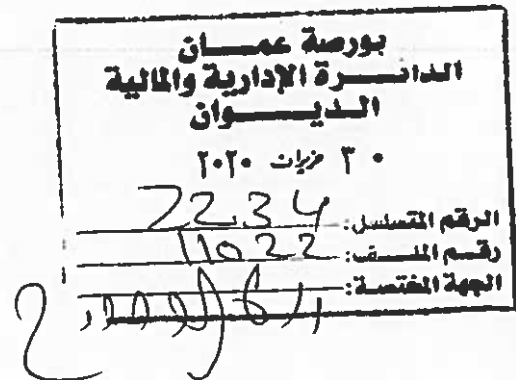 بورصة عمـــان
الدائـــرة الإدارية والمالية
الـديـــوان
٣٠ حزيران ٢٠٢٠
الرقم المتسلسل: 2234
رقـم الملـــف: 11022
الجهة المختصة: